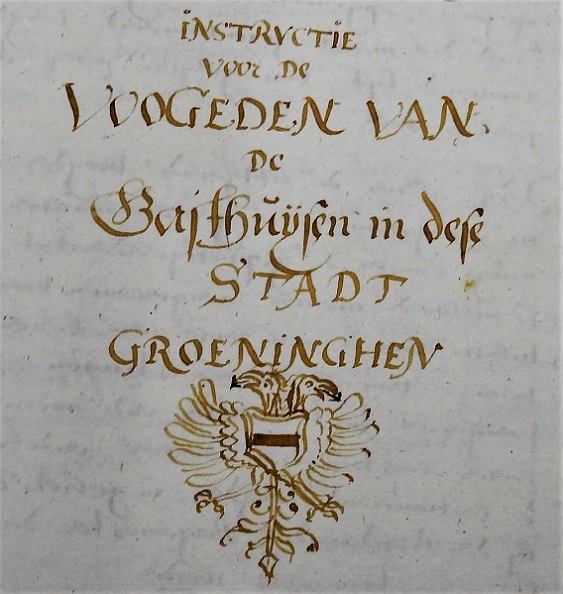 INSTRVCTIE
voor De
VOOGEDEN VAN
De
Gasthuÿsen in dese
STADT
GROENINGHEN